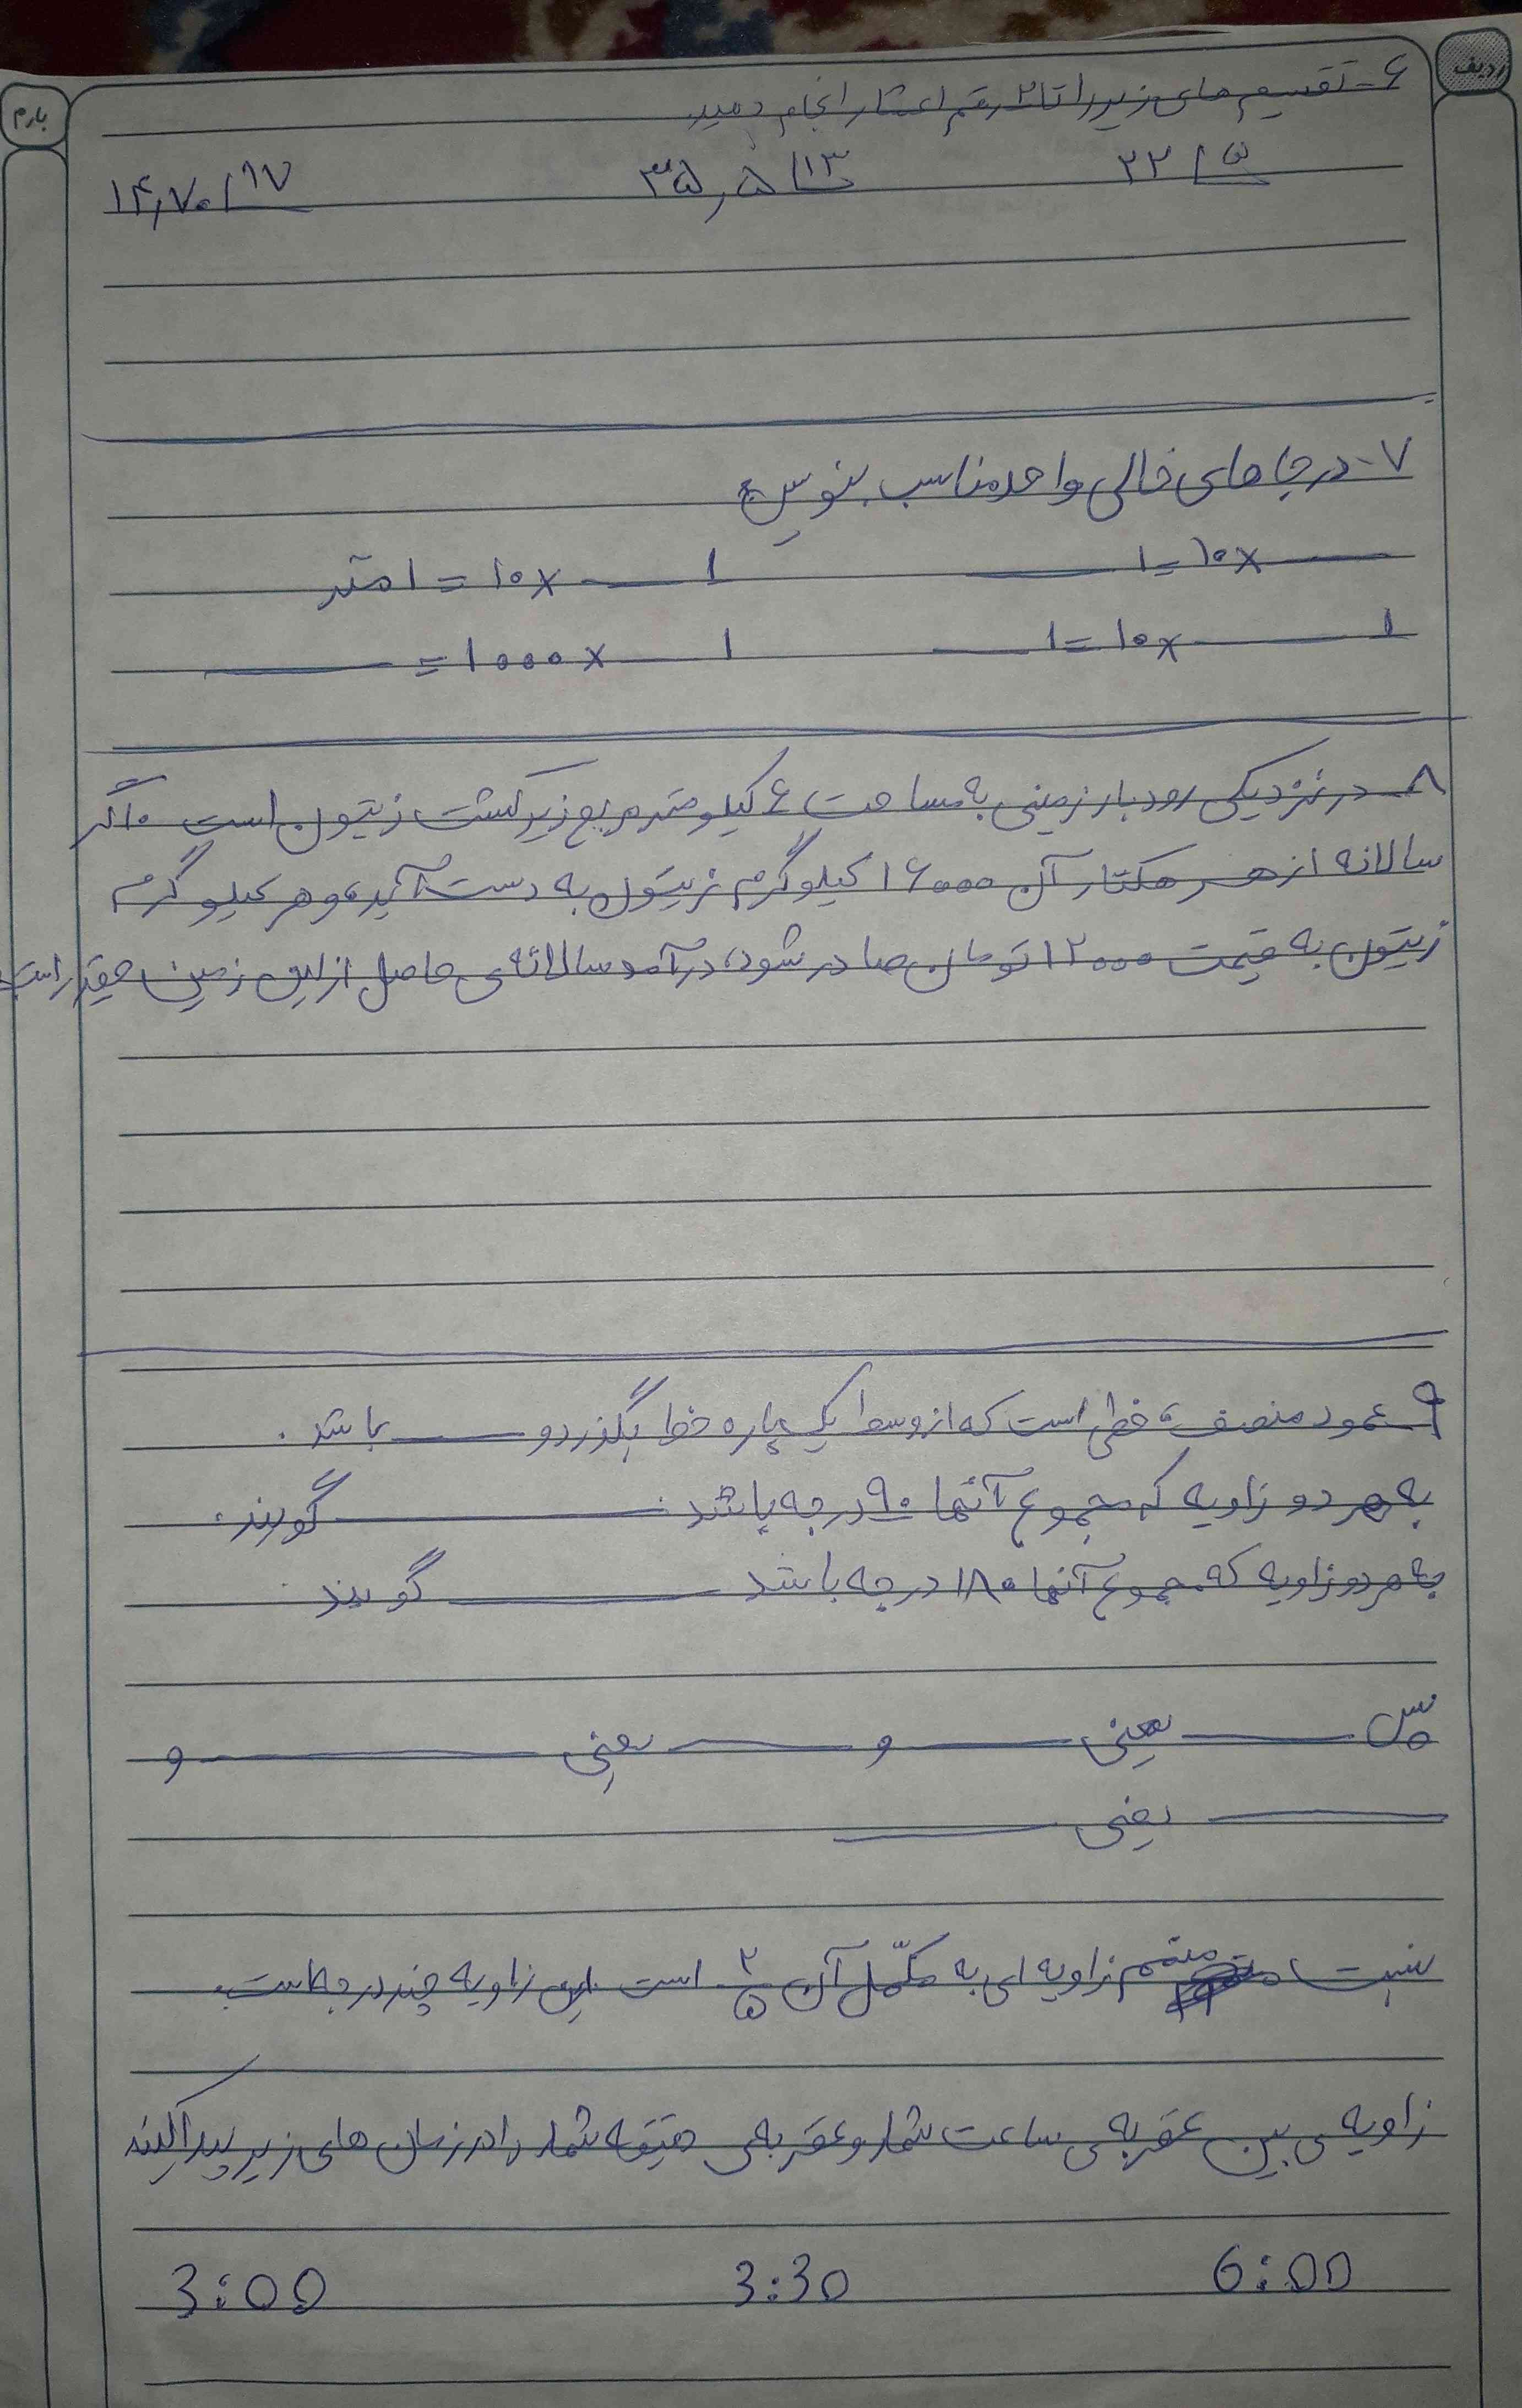 ردیف
بارم
۶- تقسیم های زیر را تا ۲ رقم اعشار انجام دهید.
۲۲ ۵ ۳۵,۵ ۱۳ ۱۴,۷۰ ۱۷
۷- در جاهای خالی واحد مناسب بنویس
۱۰× = ۱ ۱ ×۱۰ = ۱ متر
۱ ×۱۰ = ۱ ۱ ×۱۰۰۰ =
۸- در نزدیکی رودبار زمینی به مساحت ۶ کیلومتر مربع زیر کشت زیتون است. اگر
سالانه از هر هکتار آن ۱۶۰۰۰ کیلوگرم زیتون به دست آید، و هر کیلوگرم
زیتون به قیمت ۱۲۰۰۰ تومان صادر شود، در آمد سالانه ی حاصل از این زمین چقدر است
۹- عمود منصف، خطی است که از وسط یک پاره خط بگذرد و باشد.
به هر دو زاویه که مجموع آنها ۹۰ درجه باشد گویند.
به هر دو زاویه که مجموع آنها ۱۸۰ درجه باشد گویند.
پس یعنی و یعنی و
یعنی
نسبت متمم زاویه ای به مکمّل آن ۲/۵ است این زاویه چند درجه است.
زاویه ی بین عقربه ی ساعت شمار و عقربه ی دقیقه شمار را در زمان های زیر پیدا کنید
6:00 3:30 3:00